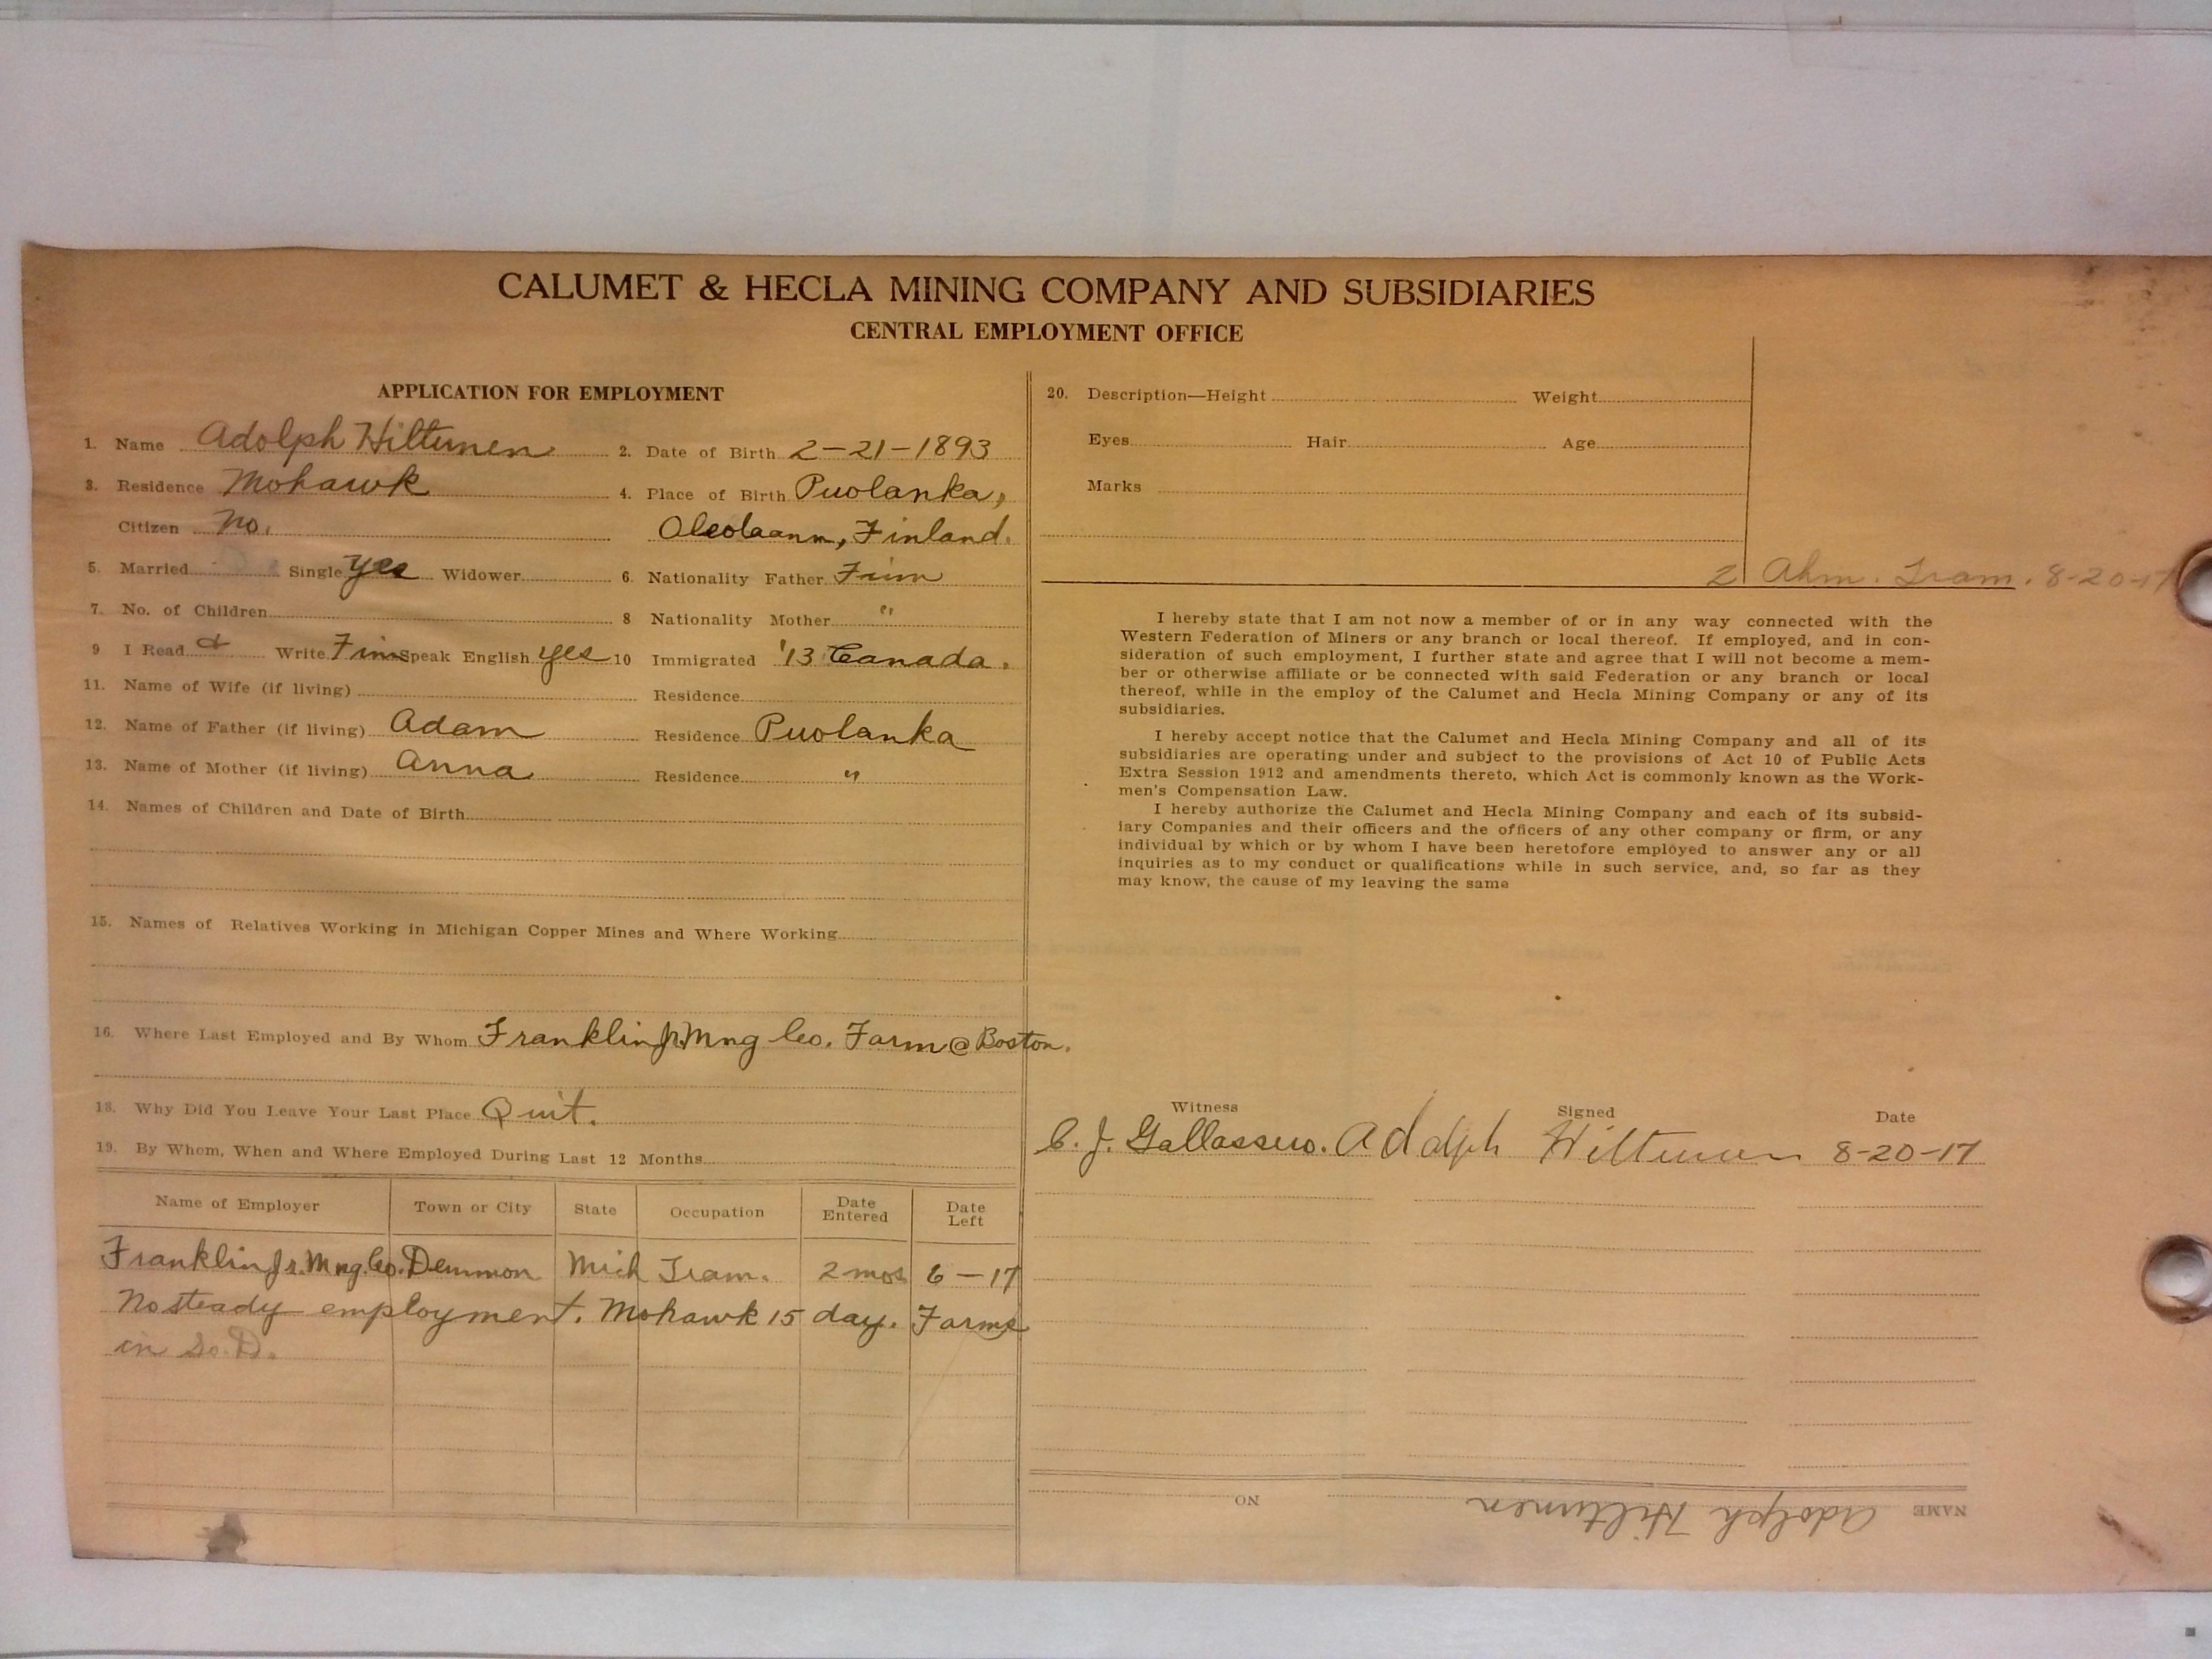 CALUMET & HECLA MINING COMPANY AND SUBSIDIARIES
CENTRAL EMPLOYMENT OFFICE
APPLICATION FOR EMPLOYMENT
1. Name Adolph Hiltunen 2. Date of Birth 2-21-1893
3. Residence Mohawk 4. Place of Birth Puolanka,
Citizen No. Finland.
5. Married Single yes Widower 6. Nationality Father Finn
7. No. of Children 8 Nationality Mother "
9 I Read & Write Finn Speak English yes 10 Immigrated '13 Canada.
11. Name of Wife (if living) Residence
12. Name of Father (if living) Adam Residence Puolanka
13. Name of Mother (if living) Anna Residence "
14. Names of Children and Date of Birth
15. Names of Relatives Working in Michigan Copper Mines and Where Working
16. Where Last Employed and By Whom Franklin Jr. Mng Co. Farm @ Boston.
18. Why Did You Leave Your Last Place Quit.
19. By Whom, When and Where Employed During Last 12 Months
Name of Employer Town or City State Occupation Date Entered Date Left
Franklin Jr. Mng. Co. Demmon Mich Tram. 2 mos 6-17
No steady employment. Mohawk 15 day. Farms
in So. D.
20. Description—Height Weight
Eyes Hair Age
Marks
2 Ahm. Tram. 8-20-17
I hereby state that I am not now a member of or in any way connected with the
Western Federation of Miners or any branch or local thereof. If employed, and in con-
sideration of such employment, I further state and agree that I will not become a mem-
ber or otherwise affiliate or be connected with said Federation or any branch or local
thereof, while in the employ of the Calumet and Hecla Mining Company or any of its
subsidiaries.
I hereby accept notice that the Calumet and Hecla Mining Company and all of its
subsidiaries are operating under and subject to the provisions of Act 10 of Public Acts
Extra Session 1912 and amendments thereto, which Act is commonly known as the Work-
men's Compensation Law.
I hereby authorize the Calumet and Hecla Mining Company and each of its subsid-
iary Companies and their officers and the officers of any other company or firm, or any
individual by which or by whom I have been heretofore employed to answer any or all
inquiries as to my conduct or qualifications while in such service, and, so far as they
may know, the cause of my leaving the same
Witness Signed Date
C. J. Adolph Hiltunen 8-20-17
NAME Adolph Hiltunen NO